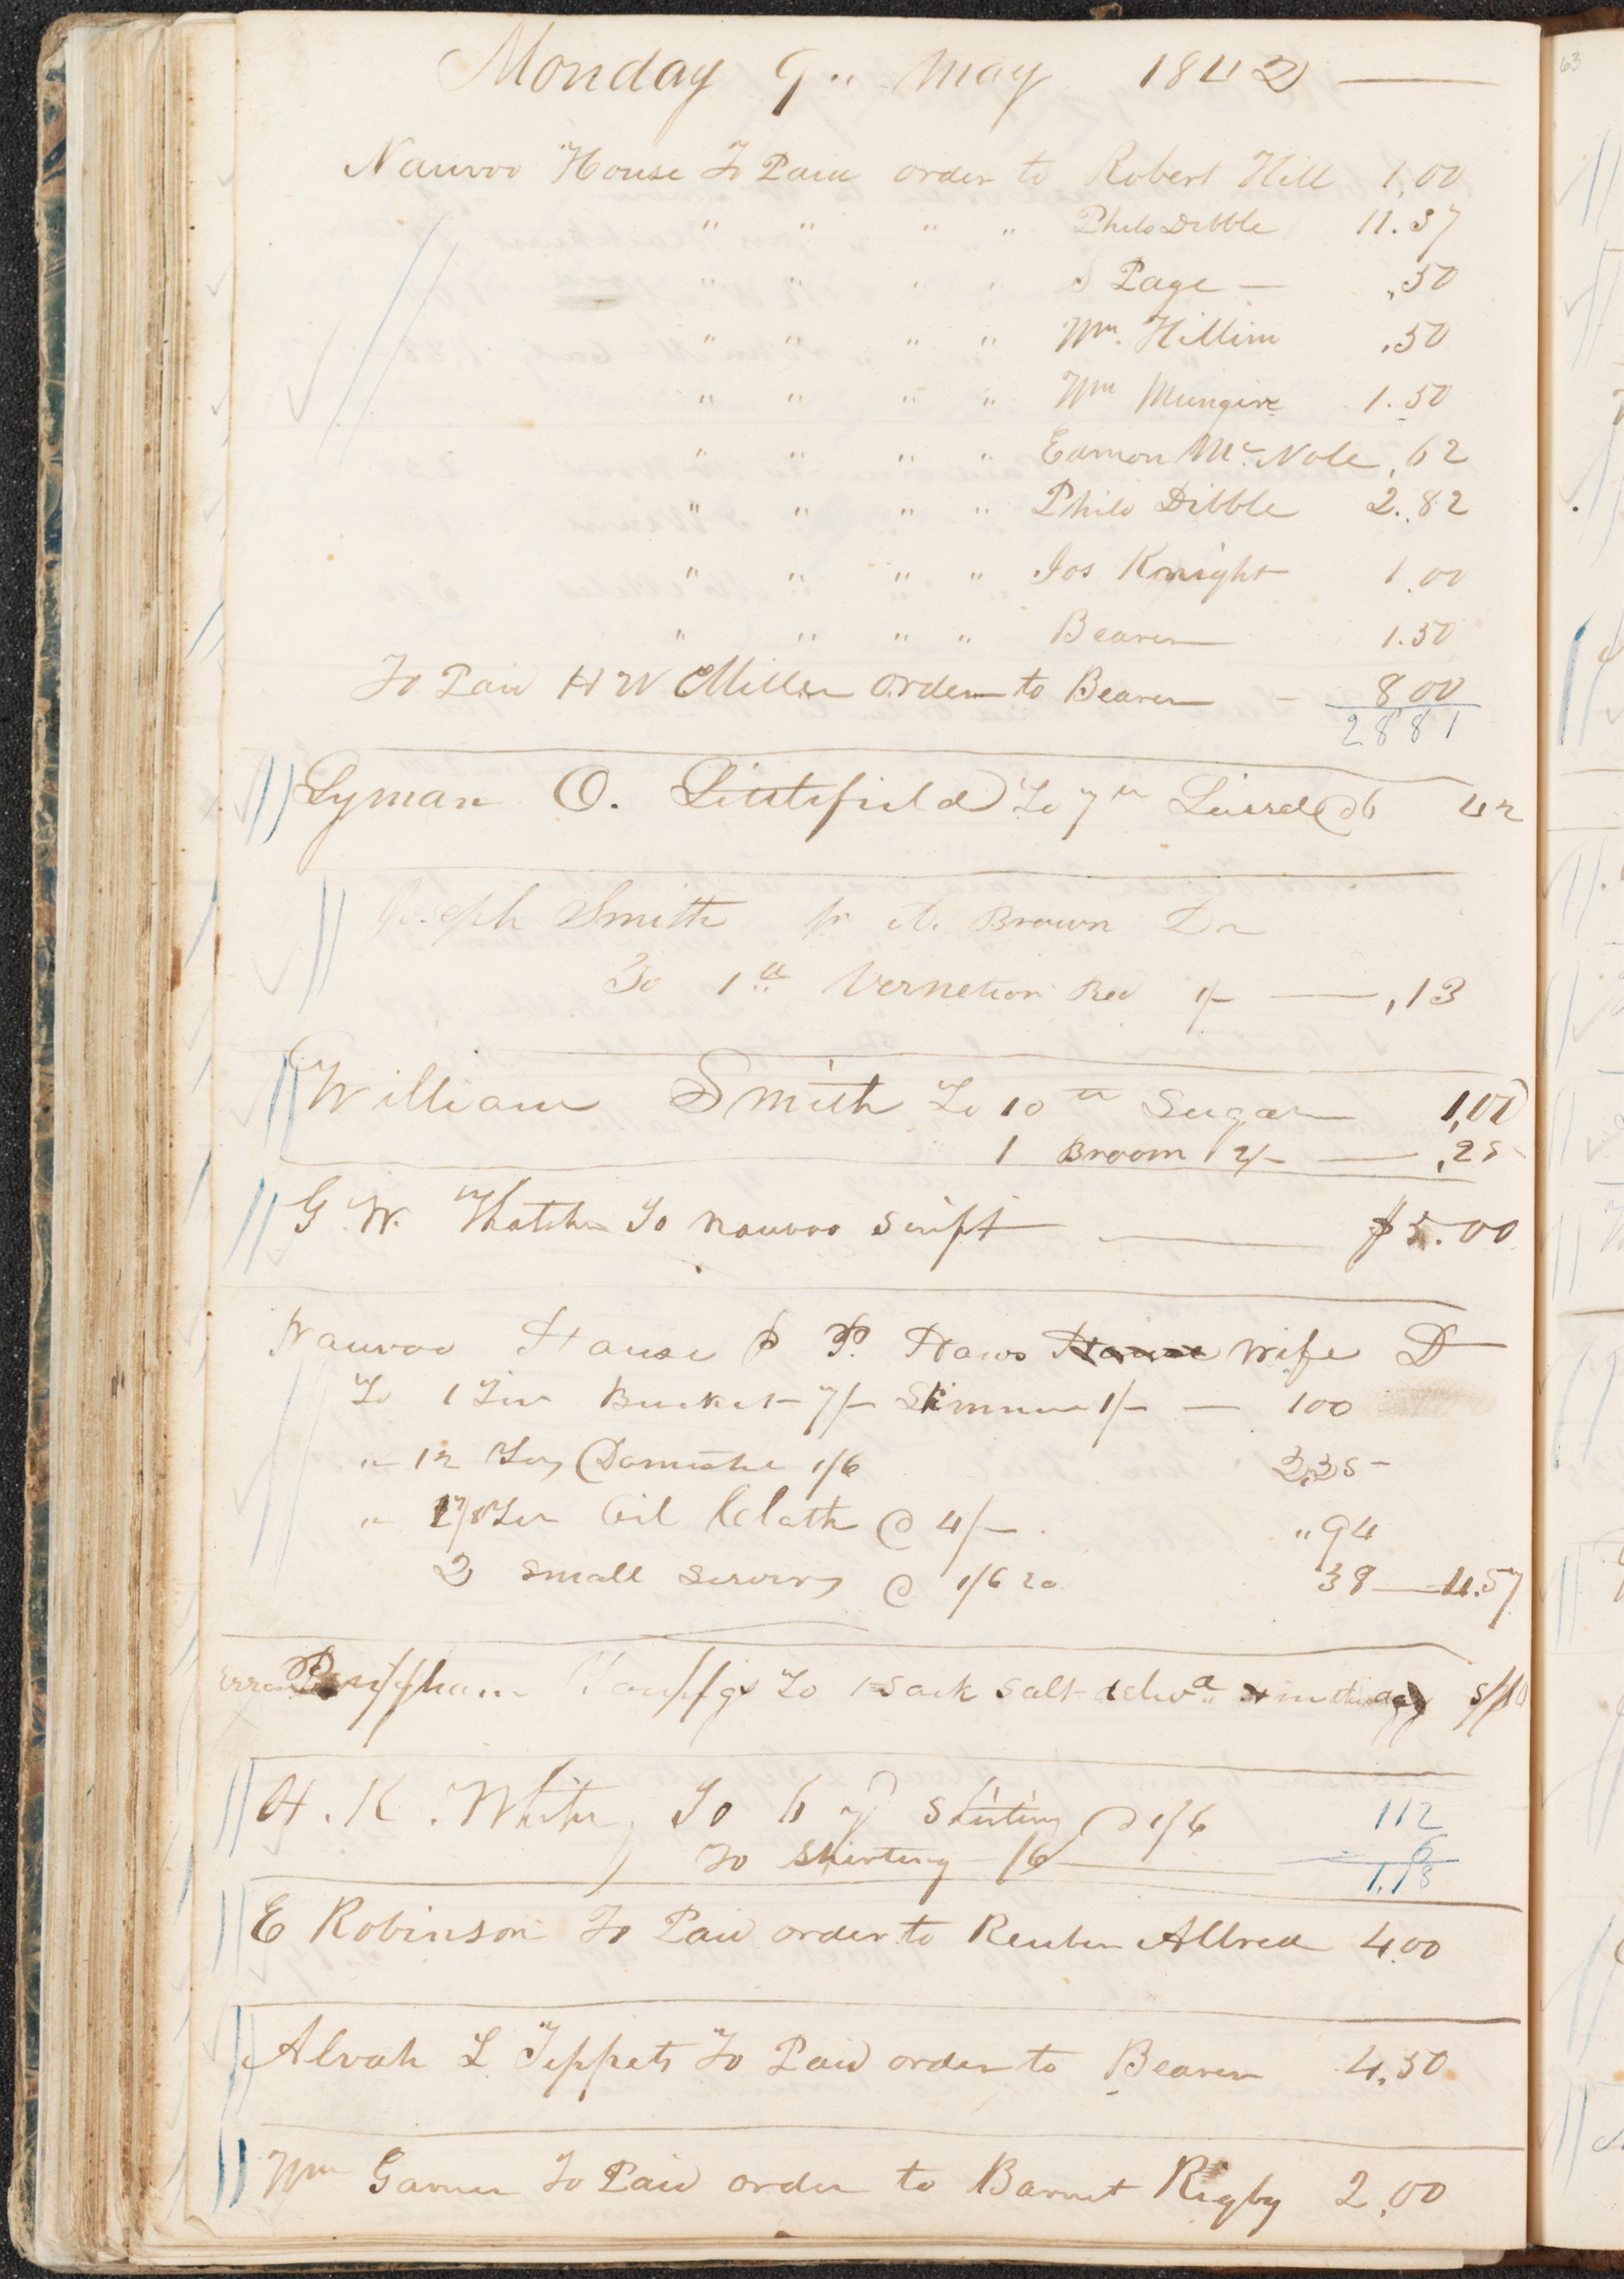 Monday 9.. May 1842
Nauvoo House To Paid order to Robert Hill 1,00
" " " " Philo Dibble 11.37
" " " " S Page — ,50
" " " " Wm. Hillim ,50
" " " " Wm Mungire 1.50
" " " " Eamon Mc. Nole ,62
" " " " Philo Dibble 2.82
" " " " Jos Knight 1.00
" " " " Bearer 1.50
To Paid H W Miller order to Bearer — 8,00
2881
Lyman O. Littlefield To 7 @ 6 42
Joseph Smith pr A. Brown Dr
To 1 Red 1/- — ,13
William Smith To 10 Sugar 1,00
1 Broom 2/- — ,25
G. W. Thatcher To Nauvoo Script — $5.00
Nauvoo House P. Haws House Wife D
To 1 Tin Bucket 7/- Skimmer 1/- — 100
" 12 1/6 2,25
" 1 7/8 Oil Cloth @ 4/- "94
2 small @ 1/6 20 38 — 4.57
Error To 1 sack salt
H. K. White, To 6 yd Shirting @ 1/6 112
To Shirting /6 — 6
1,18
E Robinson To Paid order to Reuben Allred 4.00
Alvah L Tippets To Paid order to Bearer 4,50
Wm Garner To Paid order to Barnet Rigby 2,00
63